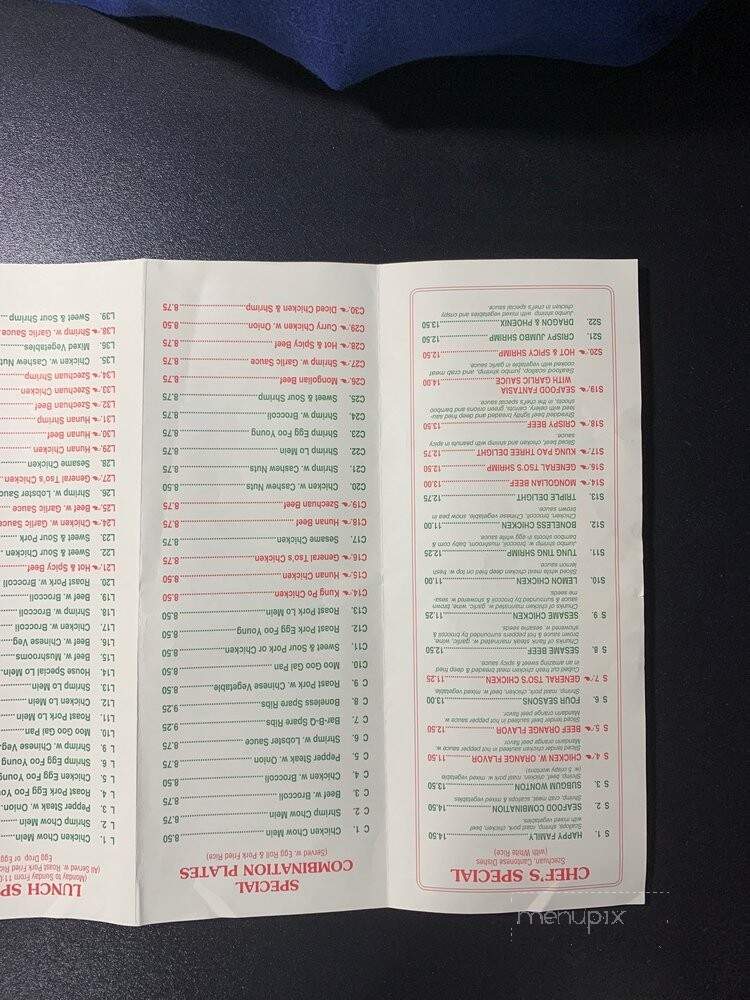 CHEF'S SPECIAL
Szechuan, Cantonese Dishes
(with White Rice)
S 1. HAPPY FAMILY 14.50
Scallops, shrimp, roast pork, chicken, beef
with mixed vegetables.
S 2. SEAFOOD COMBINATION 14.50
Shrimp, crab meat, scallops & mixed vegetables
S 3. SUBGUM WONTON 13.50
Shrimp, beef, chicken, roast pork w. mixed vegetable
(w. 5 crispy wontons)
S 4. CHICKEN W. ORANGE FLAVOR 11.50
Sliced tender chicken sauteed in hot pepper sauce w.
Mandarin orange peel flavor
S 5. BEEF W. ORANGE FLAVOR 12.50
Sliced tender beef sauteed in hot pepper sauce w.
Mandarin orange peel flavor
S 6. FOUR SEASONS 13.00
Shrimp, roast pork, chicken, beef w. mixed vegetable.
S 7. GENERAL TSO'S CHICKEN 11.25
Cubed fresh chicken meat breaded & deep fried
in an amazing sweet & spicy sauce.
S 8. SESAME BEEF 12.50
Chunks of flank steak marinated w. garlic, wine,
brown sauce & hot peppers surrounded by broccoli &
showered w. sesame seeds.
S 9. SESAME CHICKEN 11.25
Chunks of chicken marinated w. garlic, wine, brown
sauce & surrounded by broccoli & showered w. sesa-
me seeds
S10. LEMON CHICKEN 11.00
Sliced white meat chicken deep fried on top w. fresh
lemon sauce
S11. TUNG TING SHRIMP 12.25
Jumbo shrimp w. broccoli, mushroom, baby corn &
bamboo shoots in egg white sauce
S12. BONELESS CHICKEN 11.00
Chicken, broccoli, Chinese vegetable, snow pea in
brown sauce
S13. TRIPLE DELIGHT 12.75
S14. MONGOLIAN BEEF 12.50
S15. GENERAL TSO'S SHRIMP 12.50
S17. KUNG PAO THREE DELIGHT 12.75
Sliced beef, chicken and shrimp with peanuts in spicy
sauce.
S18. CRISPY BEEF 12.50
Shredded beef lightly breaded and deep fried
with celery, carrots, green onions and bamboo
shoots, in the chef's special sauce
S19. SEAFOOD FANTASIA
WITH GARLIC SAUCE 14.00
Seafood scallop, jumbo shrimp, and crab meat
cooked with vegetables in garlic sauce.
S20. HOT & SPICY SHRIMP 12.50
S21. CRISPY JUMBO SHRIMP 12.50
S22. DRAGON & PHOENIX 13.50
Jumbo shrimp with mixed vegetables and crispy
chicken in chef's special sauce.
SPECIAL
COMBINATION PLATES
(Served w. Egg Roll & Pork Fried Rice)
C 1. Chicken Chow Mein 8.50
C 2. Shrimp Chow Mein 8.75
C 3. Beef w. Broccoli 8.75
C 4. Chicken w. Broccoli 8.50
C 5. Pepper Steak w. Onion 8.75
C 6. Shrimp w. Lobster Sauce 8.75
C 7. Bar-B-Q Spare Ribs 9.25
C 8. Boneless Spare Ribs 9.25
C 9. Roast Pork w. Chinese Vegetable 8.50
C10. Moo Goo Gai Pan 8.50
C11. Sweet & Sour Pork or Chicken 8.50
C12. Roast Pork Egg Foo Young 8.50
C13. Roast Pork Lo Mein 8.50
C14. Kung Po Chicken 8.50
C15. Hunan Chicken 8.50
C16. General Tso's Chicken 8.75
C17. Sesame Chicken 8.75
C18. Hunan Beef 8.75
C19. Szechuan Beef 8.75
C20. Chicken w. Cashew Nuts 8.50
C21. Shrimp w. Cashew Nuts 8.75
C22. Shrimp Lo Mein 8.75
C23. Shrimp Egg Foo Young 8.75
C24. Shrimp w. Broccoli 8.75
C25. Sweet & Sour Shrimp 8.75
C26. Mongolian Beef 8.75
C27. Shrimp w. Garlic Sauce 8.75
C28. Hot & Spicy Beef 8.75
C29. Curry Chicken w. Onion 8.50
C30. Diced Chicken & Shrimp 8.75
LUNCH SP
(Monday to Sunday From 11:0
(All Served w. Roast Pork Fried Rice
Egg Drop or Egg
L 1. Chicken Chow Mein
L 2. Shrimp Chow Mein
L 3. Pepper Steak w. Onion
L 4. Roast Pork Egg Foo Young
L 5. Chicken Egg Foo Young
L 6. Shrimp Egg Foo Young
L 9. Shrimp w. Chinese Veg
L10. Moo Goo Gai Pan
L11. Roast Pork Lo Mein
L12. Chicken Lo Mein
L13. Shrimp Lo Mein
L14. House Special Lo Mein
L15. Beef w. Mushrooms
L16. Beef w. Chinese Veg
L17. Chicken w. Broccoli
L18. Shrimp w. Broccoli
L19. Beef w. Broccoli
L20. Roast Pork w. Broccoli
L21. Hot & Spicy Beef
L22. Sweet & Sour Chicken
L23. Sweet & Sour Pork
L24. Chicken w. Garlic Sauce
L25. Beef w. Garlic Sauce
L26. Shrimp w. Lobster Sauce
L27. General Tso's Chicken
L28. Sesame Chicken
L29. Hunan Chicken
L30. Hunan Beef
L31. Hunan Shrimp
L32. Szechuan Beef
L33. Szechuan Chicken
L34. Szechuan Shrimp
L35. Chicken w. Cashew Nuts
L36. Mixed Vegetables
L38. Shrimp w. Garlic Sauce
L39. Sweet & Sour Shrimp
menupix